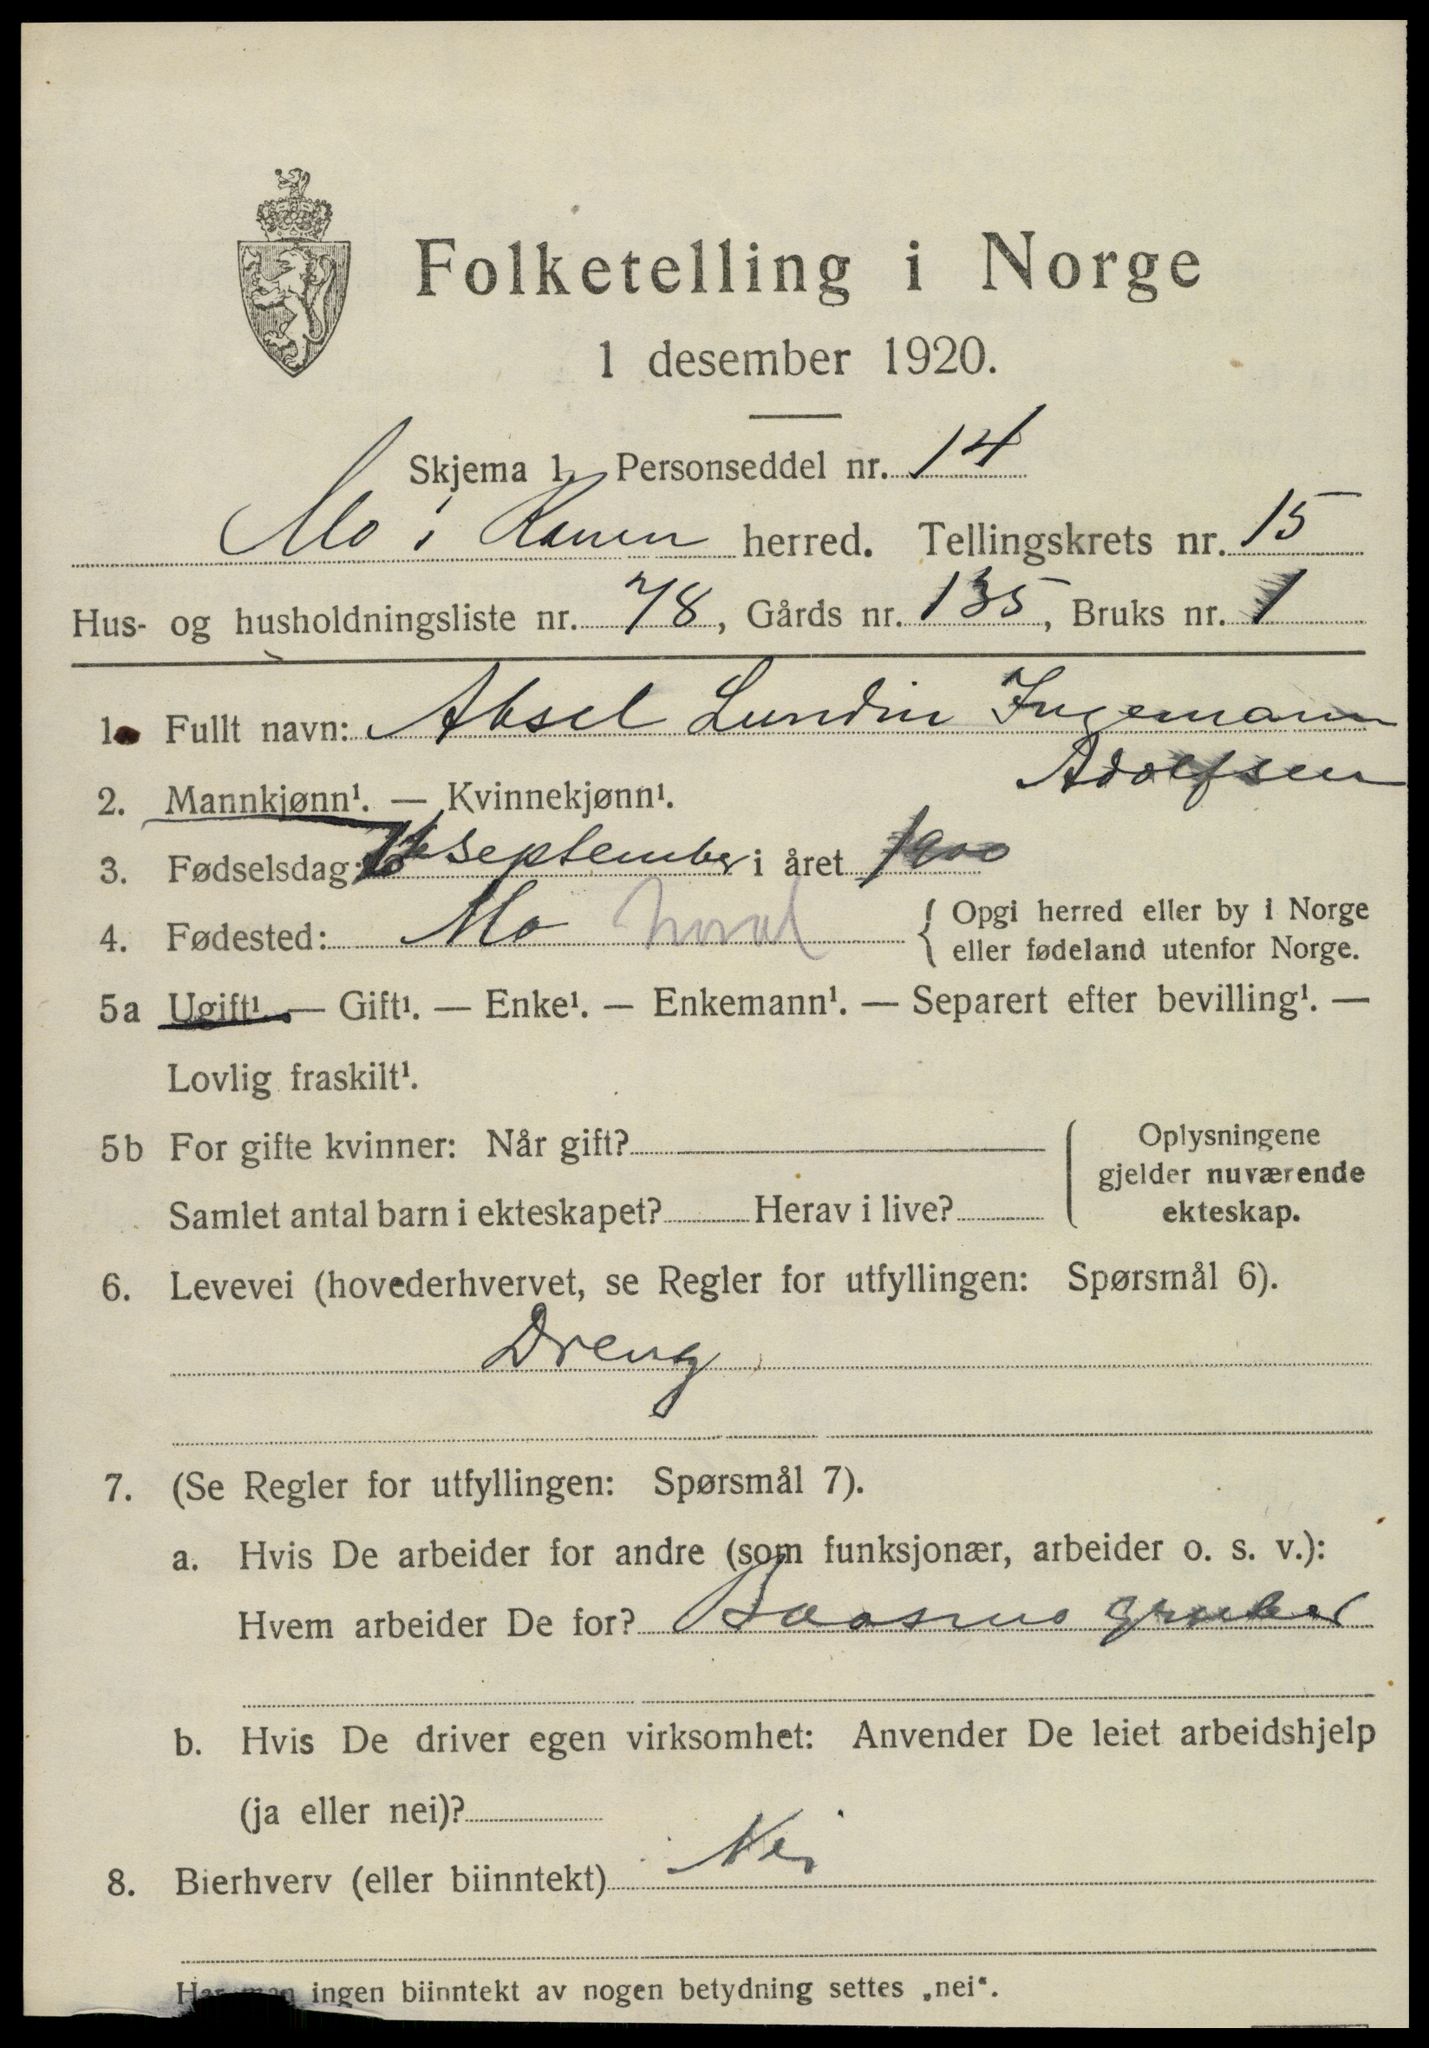 Folketelling i Norge
1 desember 1920.
Skjema 1. Personseddel nr. 14
Mo i Ranen herred. Tellingskrets nr. 15
Hus- og husholdningsliste nr. 78, Gårds nr. 135, Bruks nr. 1
1. Fullt navn: Aksel Lundin Ingemann
Adolfsen
2. Mannkjønn¹. — Kvinnekjønn¹.
3. Fødselsdag: september i året 1900
4. Fødested: Mo Nord { Opgi herred eller by i Norge
eller fødeland utenfor Norge.
5a Ugift¹. — Gift¹. — Enke¹. — Enkemann¹. — Separert efter bevilling¹. —
Lovlig fraskilt¹.
5b For gifte kvinner: Når gift? Oplysningene
gjelder nuværende
Samlet antal barn i ekteskapet? Herav i live? ekteskap.
6. Levevei (hovederhvervet, se Regler for utfyllingen: Spørsmål 6).
Dreng
7. (Se Regler for utfyllingen: Spørsmål 7).
a. Hvis De arbeider for andre (som funksjonær, arbeider o. s. v.):
Hvem arbeider De for? Baasmo gruber
b. Hvis De driver egen virksomhet: Anvender De leiet arbeidshjelp
(ja eller nei)?
8. Bierhverv (eller biinntekt) Nei
Har man ingen biinntekt av nogen betydning settes „nei“.